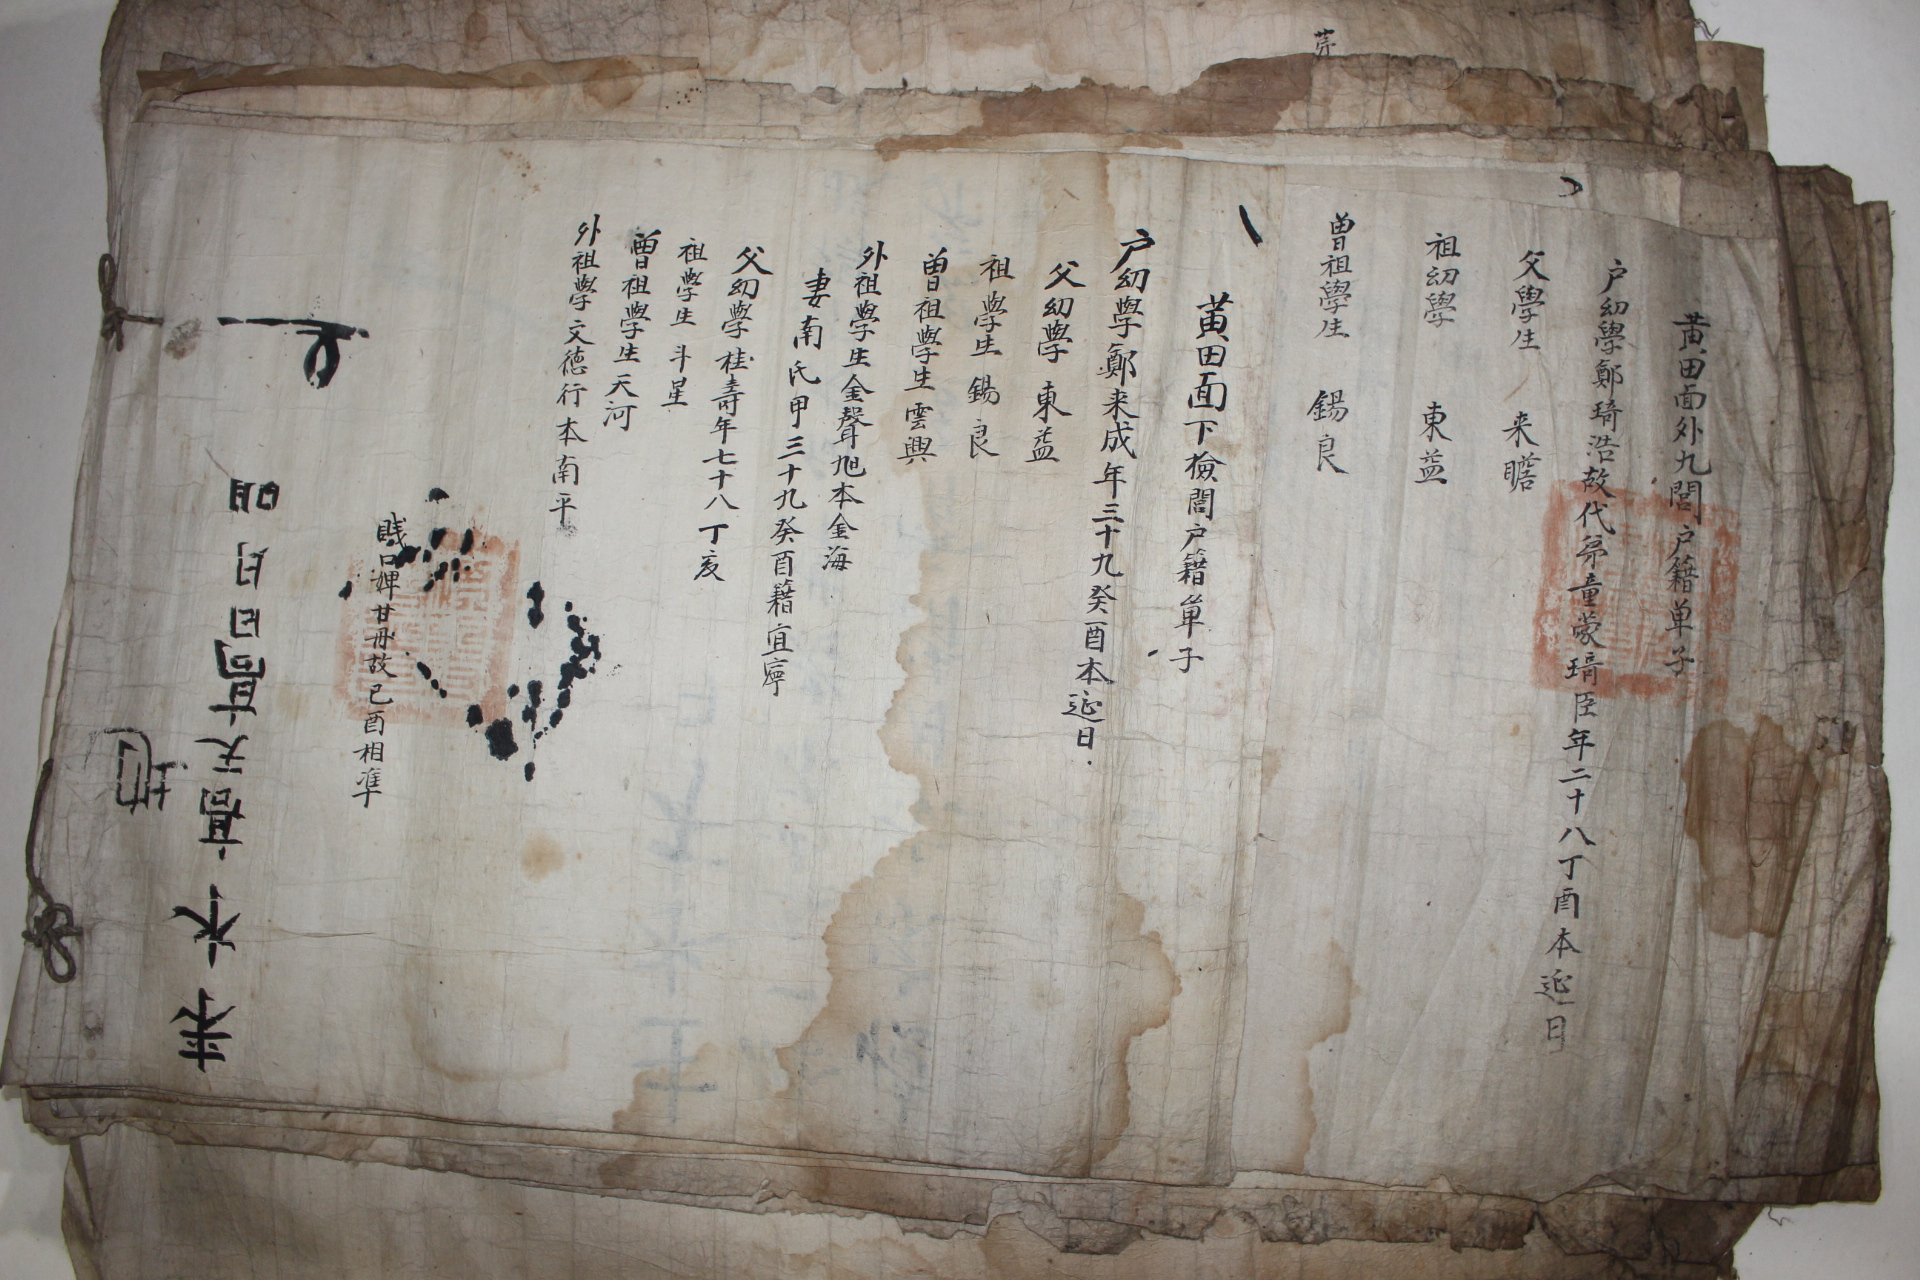 黃田面外九閭戶籍单子
戶幼學鄭琦浩故代弟童蒙琦臣年二十八丁酉本延日
父學生 来瞻
祖幼學 東益
曽祖學生 錫良
黃田面下檢閭戶籍单子
戶幼學鄭来成年三十九癸酉本延日
父幼學 東益
祖學生 錫良
曽祖學生 雲興
外祖學生金聲旭本金海
妻南氏甲三十九癸酉籍宜寧
父幼學桂壽年七十八丁亥
祖學生斗星
曽祖學生天河
外祖學文德行本南平
賎口婢甘丹故己酉相準
来水高天高日月明
地